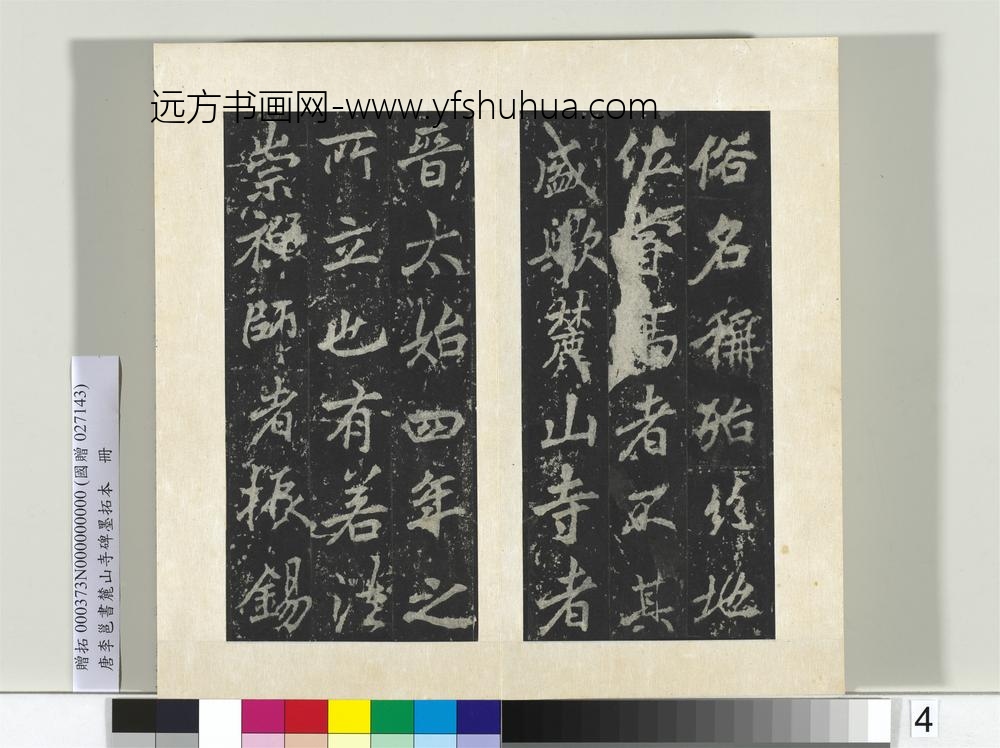 远方书画网-www.yfshuhua.com
俗名稱殆經地
佐
者不其
盛歟麓山寺者
晉太始四年之
所立也有若法
崇禪師者振錫
贈拓 000373N000000000 (國贈 027143)
唐李邕書麓山寺碑墨拓本 冊
4